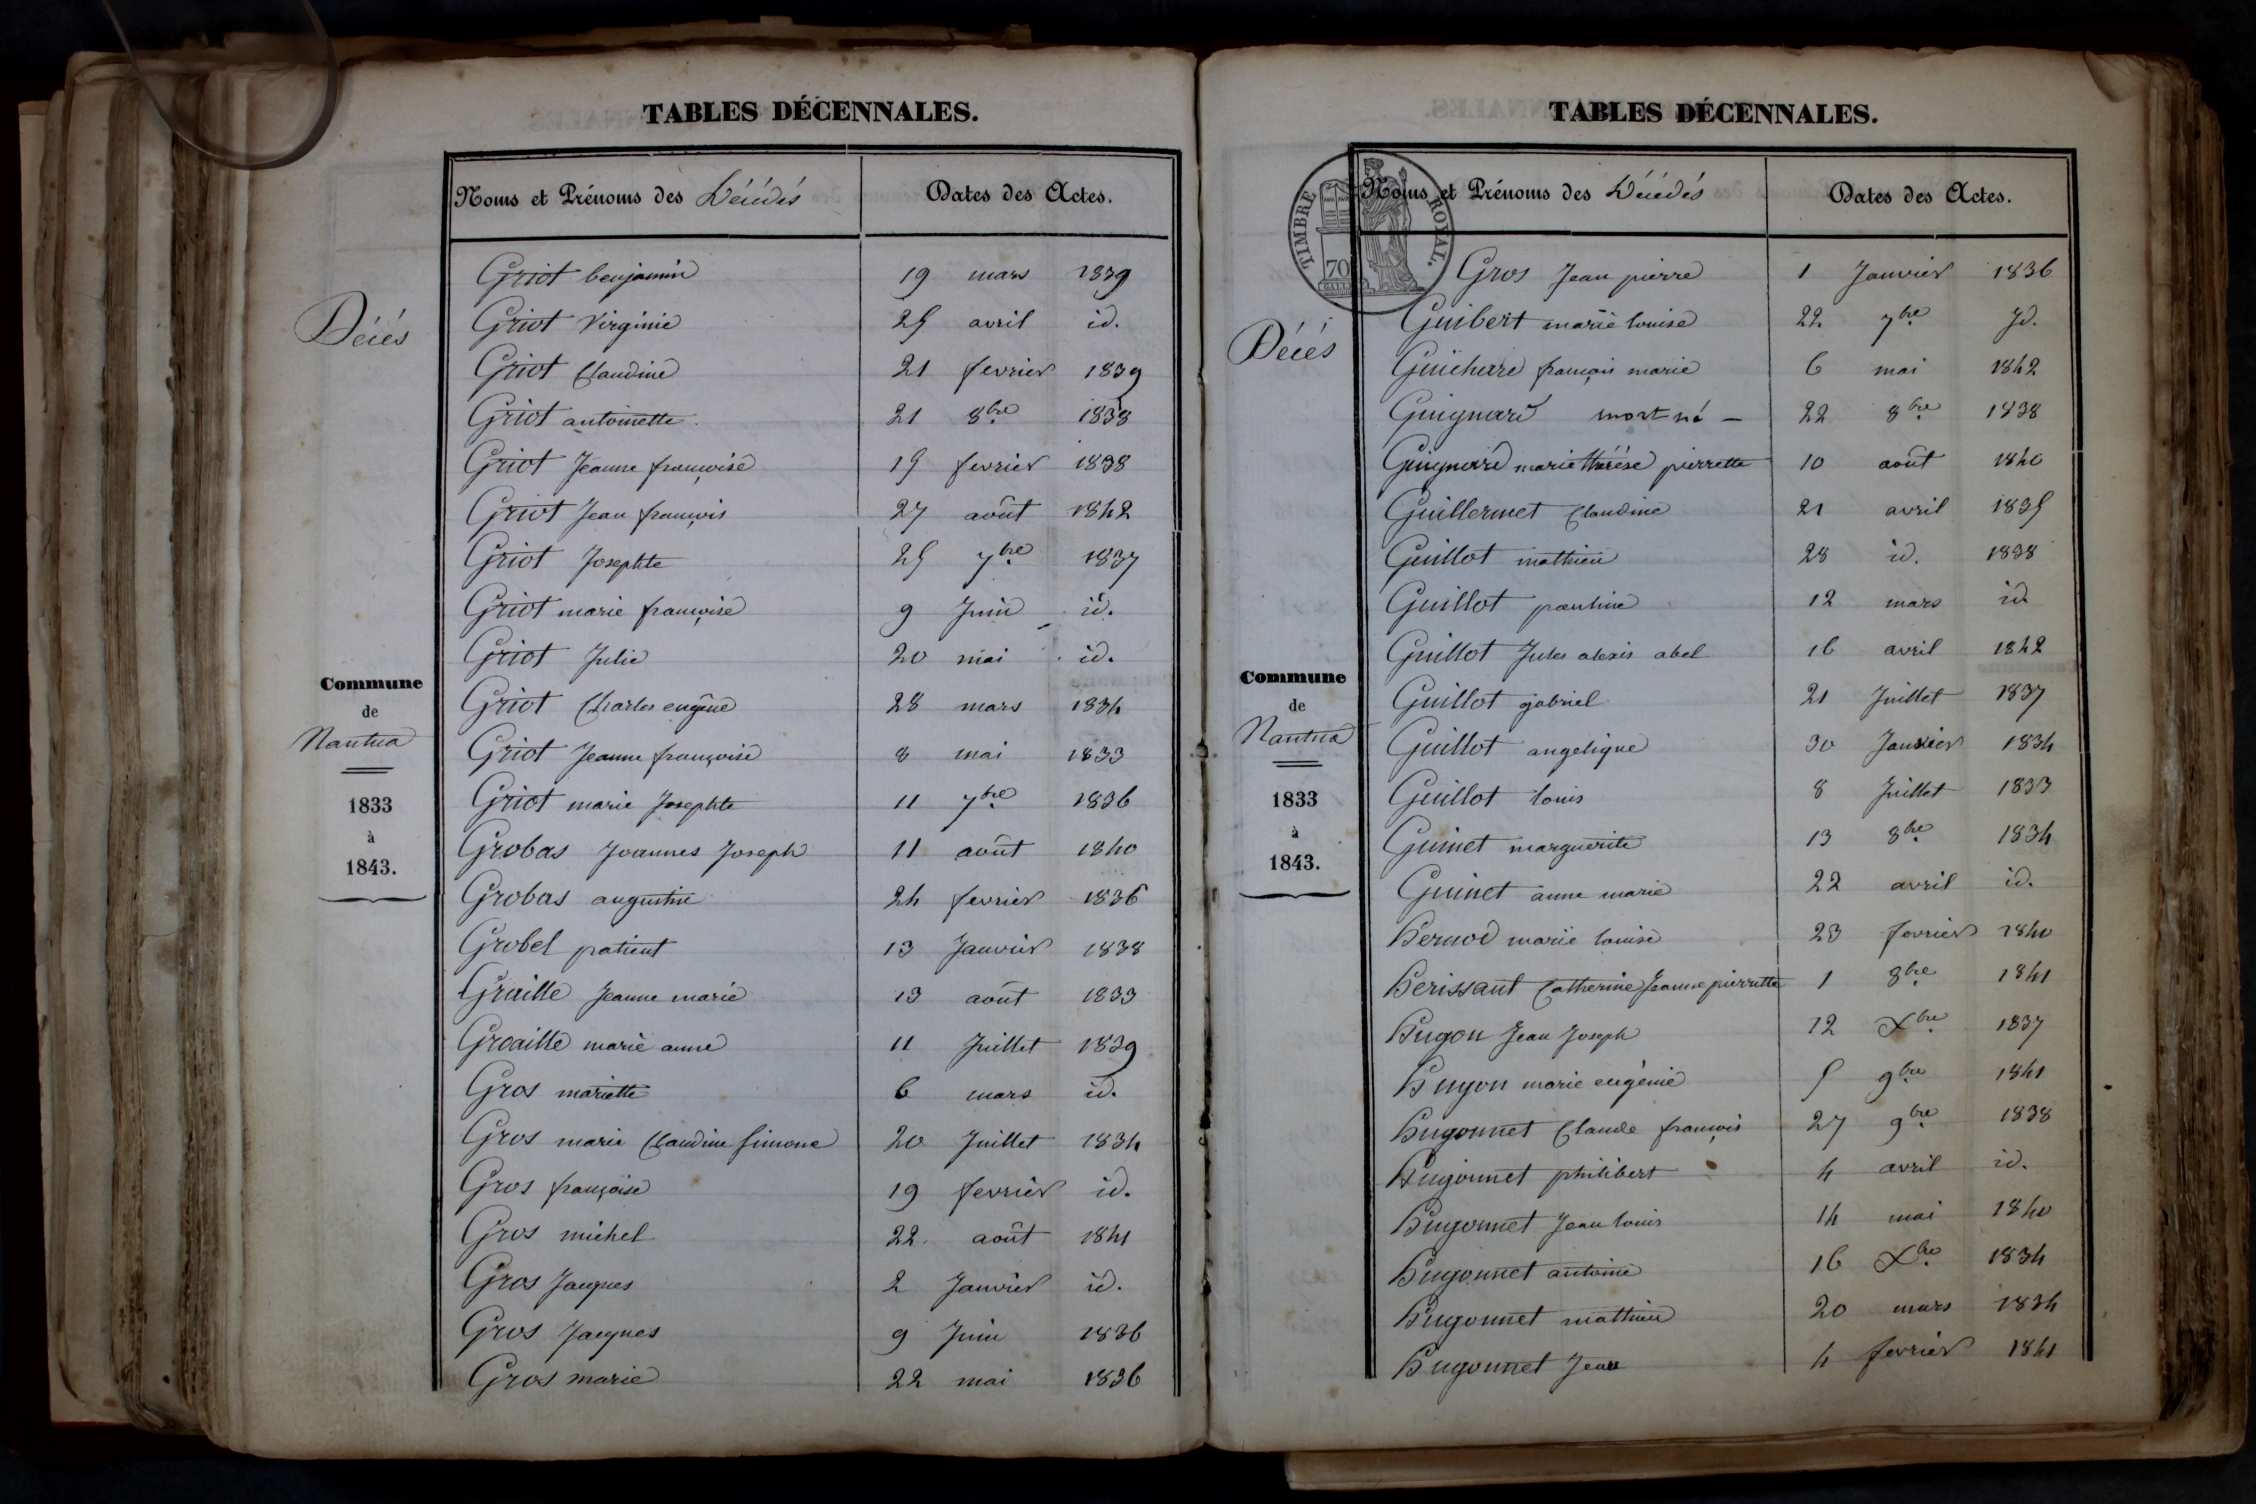 TABLES DÉCENNALES.
Noms et Prénoms des Décédés Dates des Actes.
Décès
Commune
de
Nantua
1833
à
1843.
Griot benjamin 19 mars 1839
Griot Virginie 25 avril id.
Griot Claudine 21 fevrier 1839
Griot antoinette 21 8bre 1838
Griot Jeanne françoise 15 fevrier 1838
Griot Jean françois 27 août 1842
Griot Josephte 25 7bre 1837
Griot marie françoise 9 Juin id.
Griot Julie 20 mai id.
Griot Charles eugène 28 mars 1834
Griot Jeanne françoise 8 mai 1833
Griot marie Josephte 11 7bre 1836
Grobas Joannes Joseph 11 août 1840
Grobas augustine 24 fevrier 1836
Grobel patient 13 Janvier 1838
Graille Jeanne marie 13 août 1833
Groaille marie anne 11 Juillet 1839
Gros mariette 6 mars id.
Gros marie Claudine Simone 20 Juillet 1834
Gros françoise 19 fevrier id.
Gros michel 22 août 1841
Gros Jacques 2 Janvier id.
Gros Jacques 9 Juin 1836
Gros marie 22 mai 1836
TABLES DÉCENNALES.
TIMBRE ROYAL.
70
Noms et Prénoms des Décédés Dates des Actes.
Décès
Commune
de
Nantua
1833
à
1843.
Gros Jean pierre 1 Janvier 1836
Guibert marie louise 22 7bre Id.
Guichard françois marie 6 mai 1842
Guignard mort né - 22 8bre 1838
Guignard marie thérèse pierrette 10 août 1840
Guillermet Claudine 21 avril 1835
Guillot mathieu 28 id. 1838
Guillot pauline 12 mars id
Guillot Jules alexis abel 16 avril 1842
Guillot gabriel 21 Juillet 1837
Guillot angelique 30 Janvier 1834
Guillot louis 8 Juillet 1833
Guinet marguerite 13 8bre 1834
Guinet anne marie 22 avril id.
Hernod marie louise 23 fevrier 1840
Herissant Catherine Jeanne pierrette 1 8bre 1841
Hugon Jean Joseph 12 Xbre 1837
Hugon marie eugénie 5 9bre 1841
Hugonnet Claude françois 27 9bre 1838
Hugonnet philibert 4 avril id.
Hugonnet Jean louis 14 mai 1840
Hugonnet antoine 16 Xbre 1834
Hugonnet mathieu 20 mars 1834
Hugonnet Jean 4 fevrier 1841